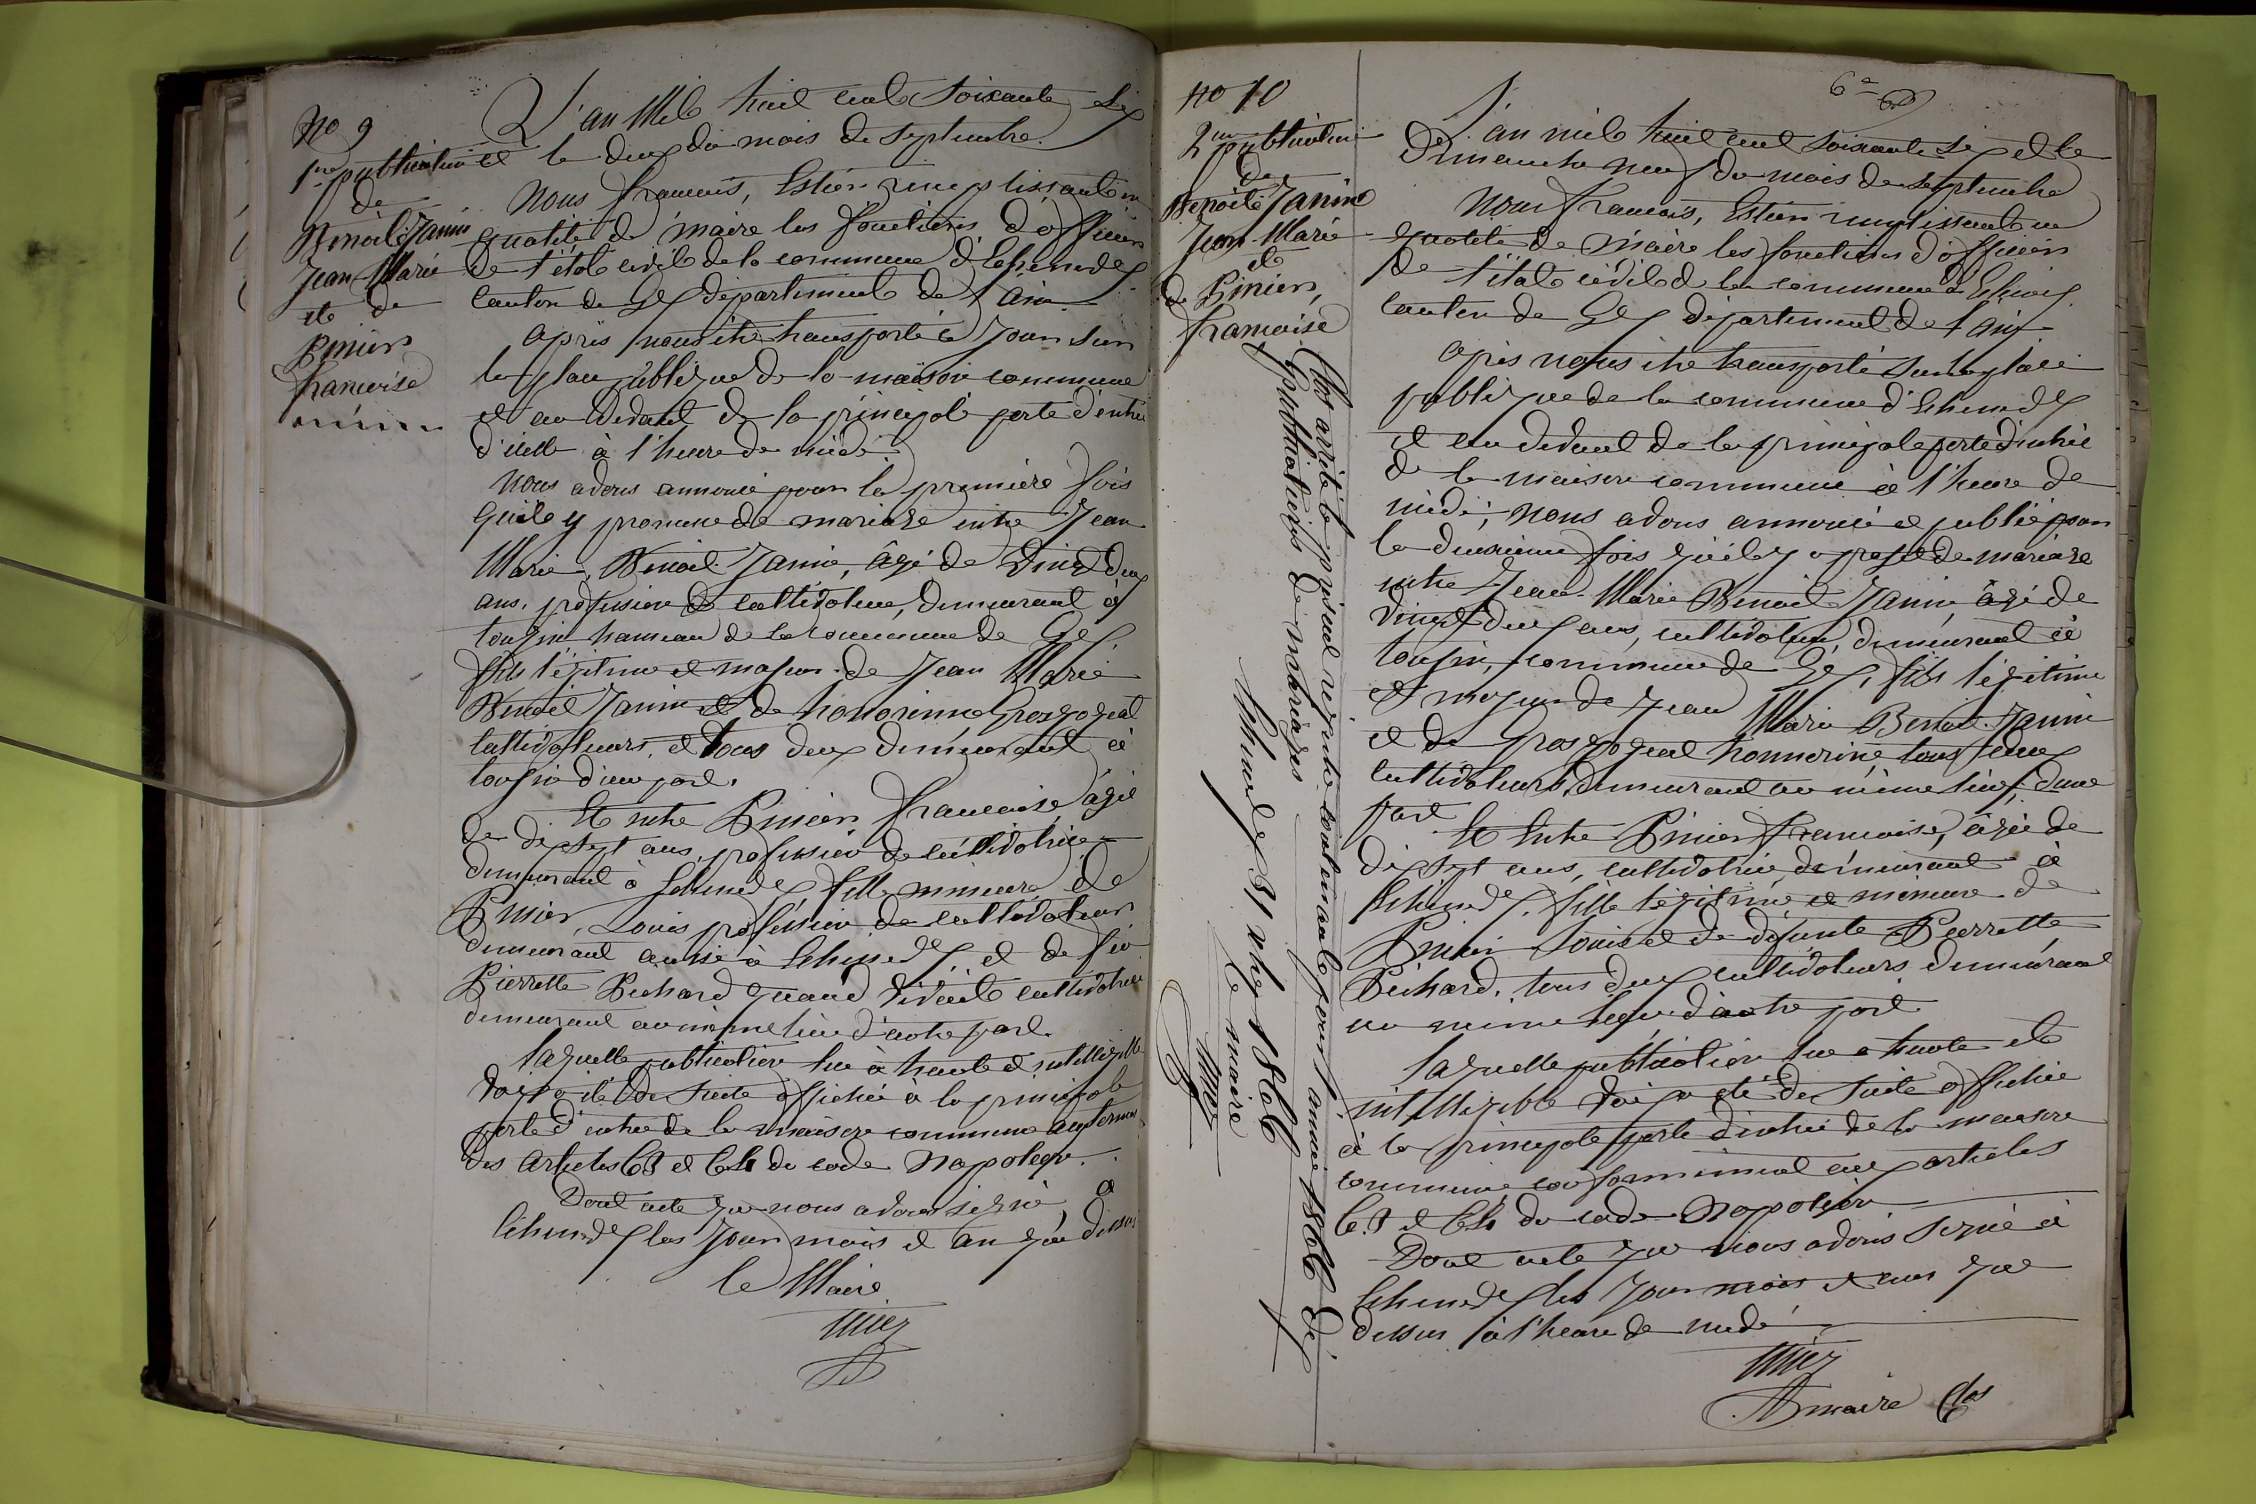 No 9
1re publication
de
Benoit Janin
Jean Marie
et de
Pinier
francoise
L'an Mil huit cent soixante six
et le deux du mois de Septembre.
Nous francois, Estier remplissant en
qualité de maire les fonctions d'officier
de l'état civil de la commune d'Echenevex
canton de Gex département de l'ain
après nous être transporté à jour sur
la place publique de la maison commune
et au devant de la principale porte d'entrée
d'icelle à l'heure de midi
Nous avons annoncé pour la première fois
qu'il y promesse de mariage entre Jean
Marie, Benoit Janin, âgé de vingt deux
ans, profession de cultivateur, demeurant à
tougin hameau de la commune de Gex
fils légitime et majeur de Jean Marie
Benoit Janin et de honorinne Grosgogeat
cultivateurs, et tous deux demeurant à
tougin d'une part.
Et entre Pinier francoise âgée
de dix sept ans, profession de cultivatrice
demeurant à Echenevex fille mineure de
Pinier, Louis profession de cultivateur
demeurant aussi à Echenevex et de feu
Pierrette Bichard quand vivait cultivatrice
demeurant au même lieu d'autre part.
laquelle publication lue à haute et intelligible
voix a été de suite affichée à la principale
porte d'entrée de la maison commune aux termes
des articles 63 et 64 du code Napoleon.
Dont acte que nous avons signé à
Echenevex les jour mois et an que dessus
le Maire
no 10
2me publication
de
Benoit Janin
Jean Marie
et
de Pinier,
francoise
Clos arrêté le présent régistre contenant pour l'année 1866 dix
publications de mariages
Echenevex 31 xbre 1866
le maire
6e
L'an mil huit cent soixante six et le
Dimanche neuf du mois de septembre
Nous francois, Estier remplissant en
qualité de maire les fonctions d'officier
de l'état civil de la commune d'Echenevex
canton de Gex département de l'ain
après nous être transporté sur la place
publique de la commune d'Echenevex
et au devant de la principale porte d'entrée
de la maison commune à l'heure de
midi, nous avons annoncé et publié pour
la deuxième fois qu'il y a projet de mariage
entre Jean-Marie Benoit Janin âgé de
vingt deux ans, cultivateur, demeurant à
tougin, commune de Gex, fils légitime
et majeur de Jean Marie Benoit Janin
et de Grosgogeat honnorine tous deux
cultivateurs, demeurant au même lieu, d'une
part
Et Entre Pinier francoise, âgée de
dix sept ans, cultivatrice demeurant à
Echenevex, fille légitime et mineure de
Pinier Louis et de défunte Pierrette
Bichard, tous deux cultivateurs demeurant
au même lieu d'autre part
laquelle publication lue a haute et
intelligible voix a été de suite affichée
à la principale porte d'entrée de la maison
commune conformement aux articles
63 et 64 du code Napoleon
Dont acte que nous avons signé à
Echenevex les jour mois et ans que
dessus à l'heure de midi
maire Clos